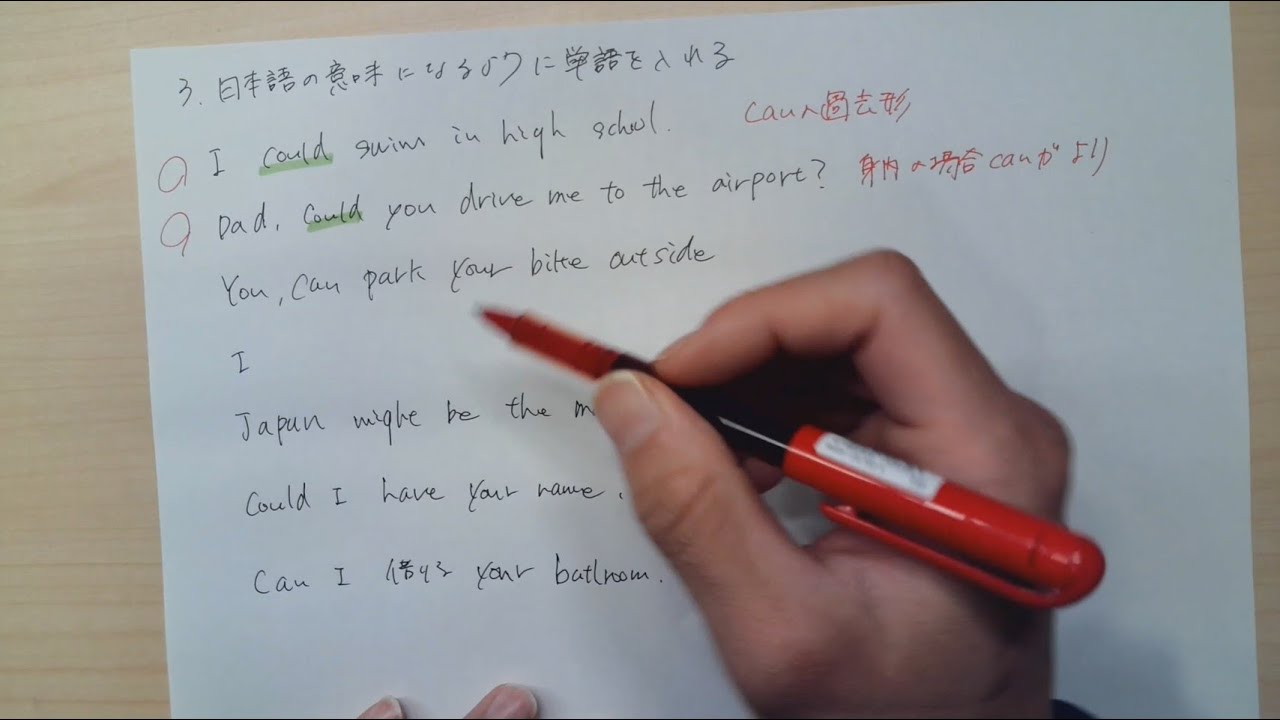 3. 日本語の意味になるように単語を入れる
I could swim in high school. canの過去形
Dad, could you drive me to the airport? 身内の場合canがより
You, can park your bike outside
I
Japan might be the
Could I have your name.
Can I 借りる your batlroom.